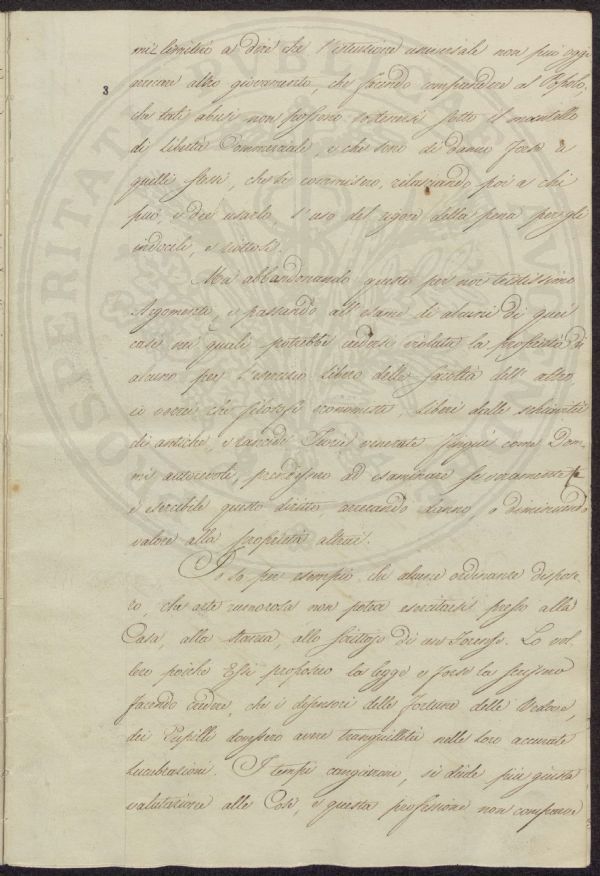 mi limiterò a dire che l'istruzione universale non può oggi
arrecare altro giovamento, che facendo comprendere al Popolo,
3
che tali abusi non possono sostenersi sotto il mantello
di libertà Commerciale, e che sono di danno forse a
quelli stessi, che li commisero, rilasciando poi a chi
può, e dee usarlo l'uso del rigore della pena per gli
indocili, e riottosi.
Ma abbandonando questo per noi tristissimo
Argomento, e passando all'esame di alcuni di quei
casi nei quali potrebbe credersi violata la proprietà di
alcuno per l'esercizio libero delle facoltà dell'altro,
io vorrei che filosofi economisti, liberi dalle schiavitù
di antiche, e rancide Teorie venerate finquì come Dom-
mi autorevoli, prendessero ad esaminare se veramente
è esercibile questo diritto, arrecando danno o diminuendo
valore alla proprietà altrui.
Io so per esempio che alcune ordinanze dispose-
ro, che arte rumorosa non potea esercitarsi presso alla
Casa, alla stanza, allo scrittojo di un Forense. Lo vol-
lero poichè Essi proposero la legge e forse la scrissero
facendo credere, che i difensori delle fortune delle Vedove,
dei Pupilli dovessero avere tranquillità nelle loro accurate
lucubrazioni. I tempi cangiarono, si diede più giusta
valutazione alle Cose, e questa professione non comparve
PROSPERITATI PUBLICAE AUGENDAE